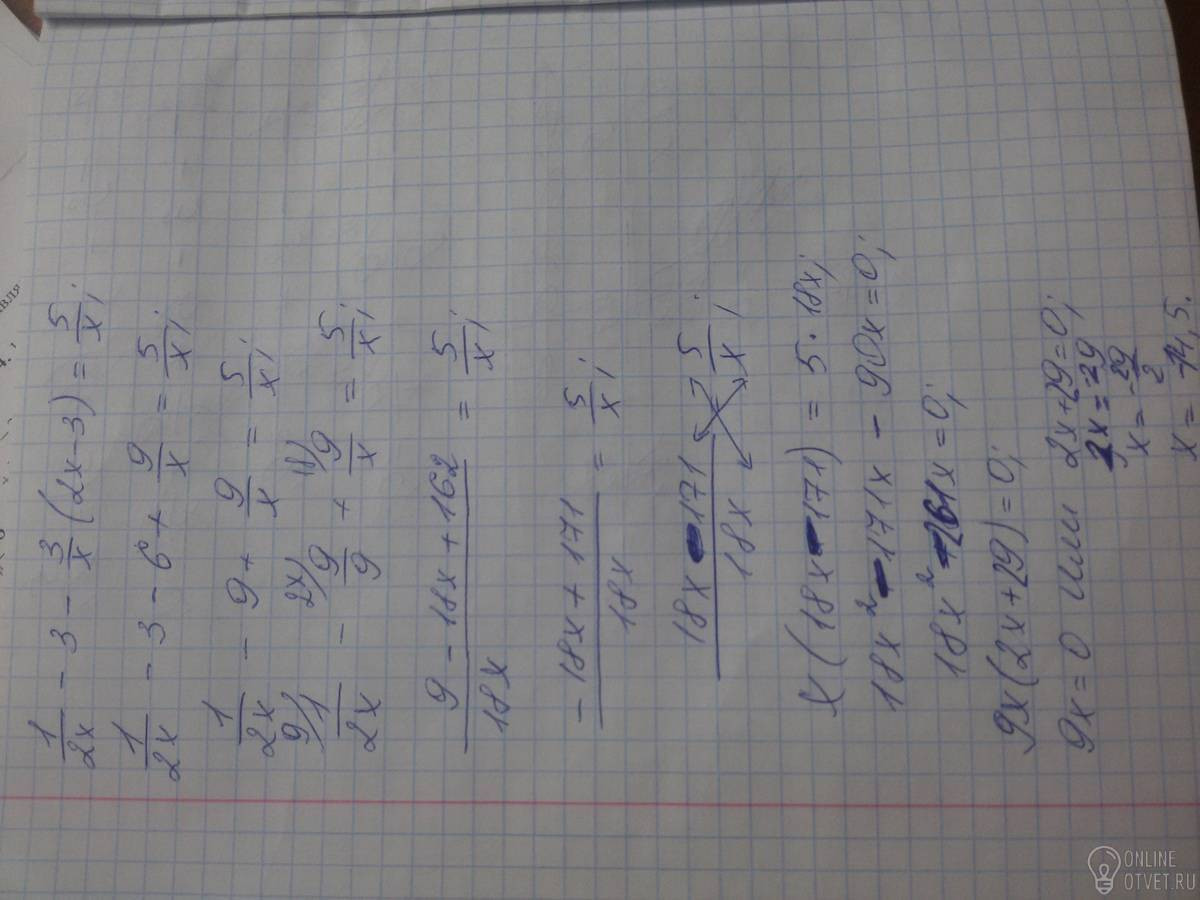 1/2x - 3 - 3/x (2x-3) = 5/x;
1/2x - 3 - 6 + 9/x = 5/x;
1/2x - 9 + 9/x = 5/x;
9/ 2x/ 18/
1/2x - 9/9 + 9/x = 5/x;
9 - 18x + 162 / 18x = 5/x;
-18x + 171 / 18x = 5/x;
18x - 171 / 18x = 5/x;
x(18x - 171) = 5 · 18x;
18x² - 171x - 90x = 0;
18x² - 261x = 0;
9x(2x+29) = 0;
9x = 0 или 2x+29=0;
2x = -29
x = -29/2
x = -14,5.
ONLINE
OTVET.RU